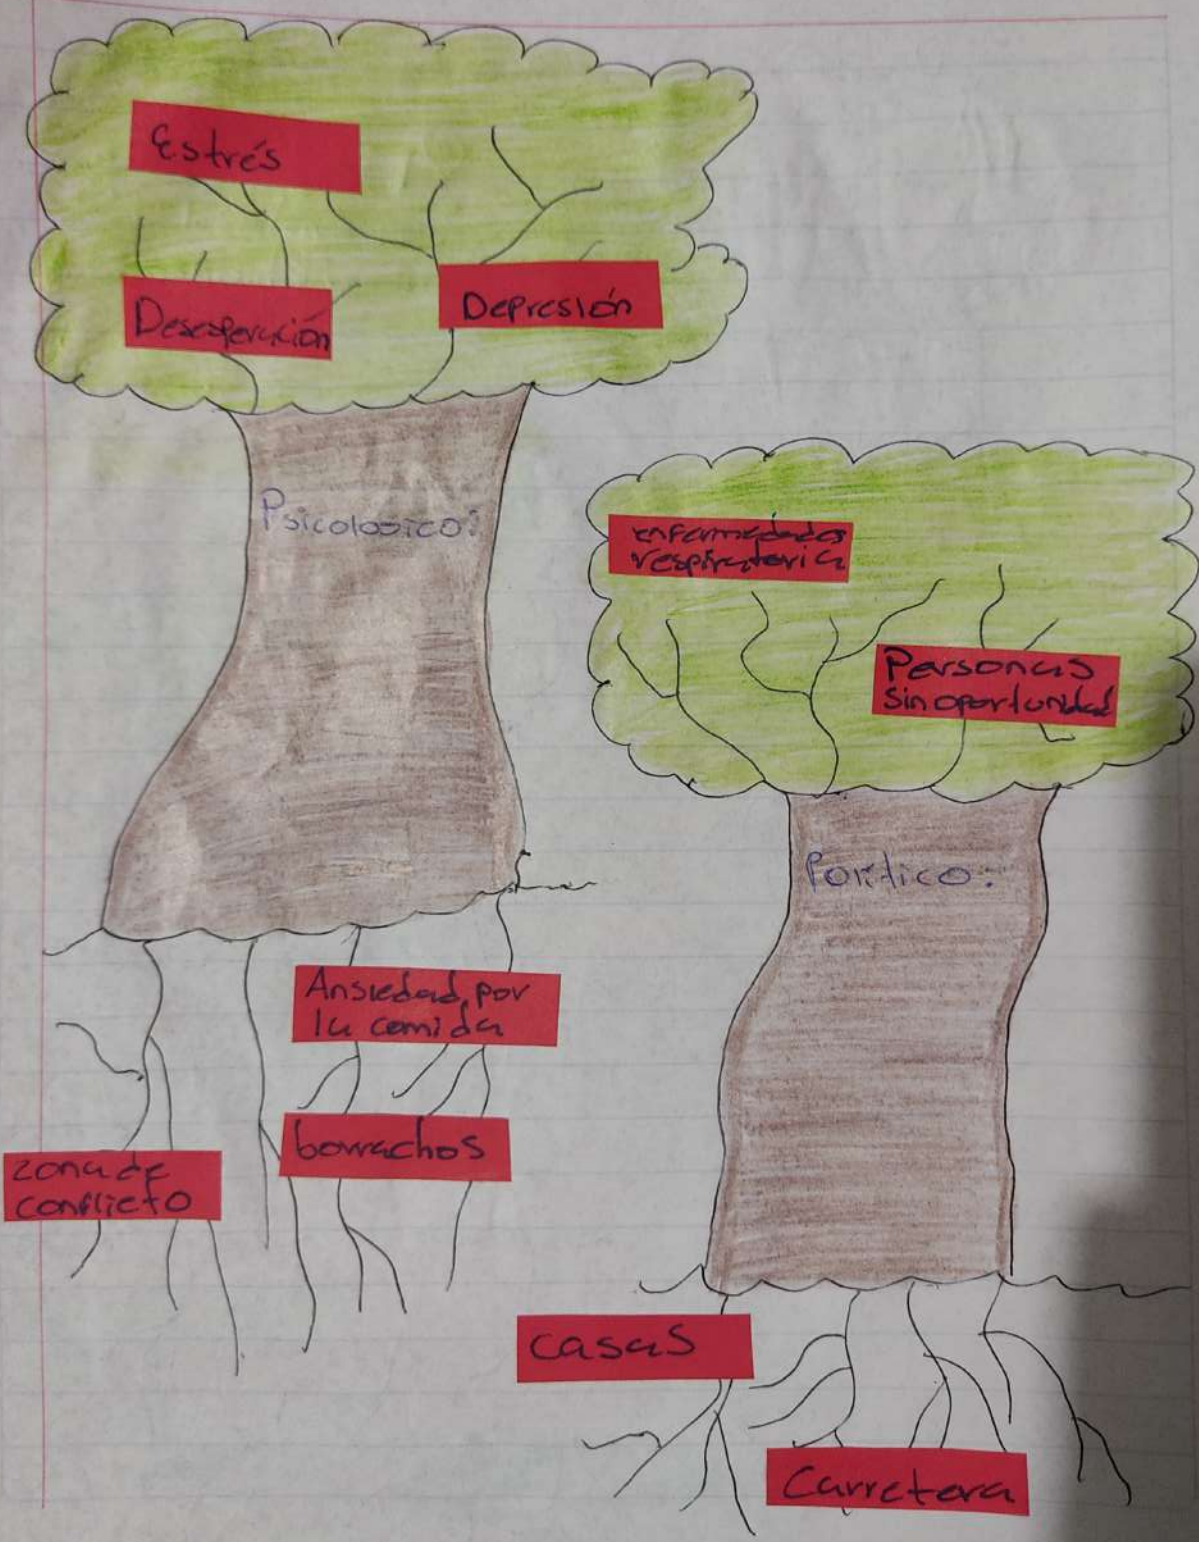 Estrés
Desesperación
Depresión
Psicologico:
Ansiedad por
la comida
borrachos
zona de
conflicto
enfermedades
respiratoria
Personas
sin oportunidad
Político:
casas
Carretera